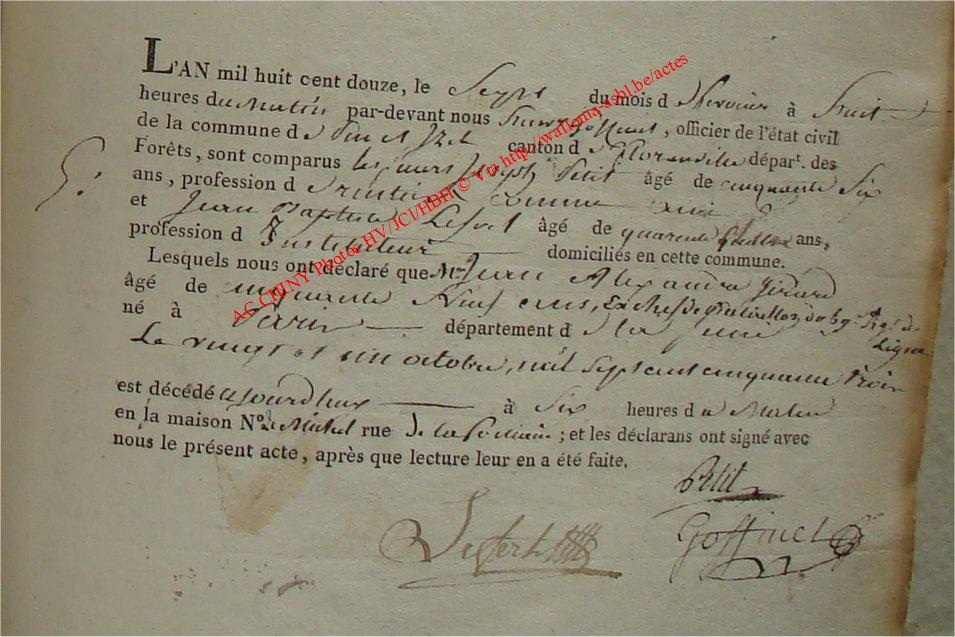 L'AN mil huit cent douze, le Sept du mois d e Fevrier à huit
heures du Matin par-devant nous Goffinet, officier de l'état civil
de la commune d e Pin et Izel canton d e Florenville départ. des
Forêts, sont comparus les sieurs Joseph Petit âgé de cinquante Six
5.
ans, profession d e rentier comme ami
et Jean Baptiste Lefert âgé de quarente quattre ans,
profession d Instituteur domiciliés en cette commune.
Lesquels nous ont déclaré que Mr Jean Alexandre Gerard
âgé de cinquante huit ans, Ex chef de Bataillon, du 69e Rgt. de
Ligne
né à Paris département d e la Seine
Le vingt et un octobre, mil sept cent cinquante trois
est décédé cejourdhuy à Six heures d u Matin
en la maison No. de Michel rue de la ; et les déclarans ont signé avec
nous le présent acte, après que lecture leur en a été faite.
Petit
Lefert
Goffinet
AG CHINY Photos HV/JCl/HBH © Via http://wallonia-asbl.be/actes